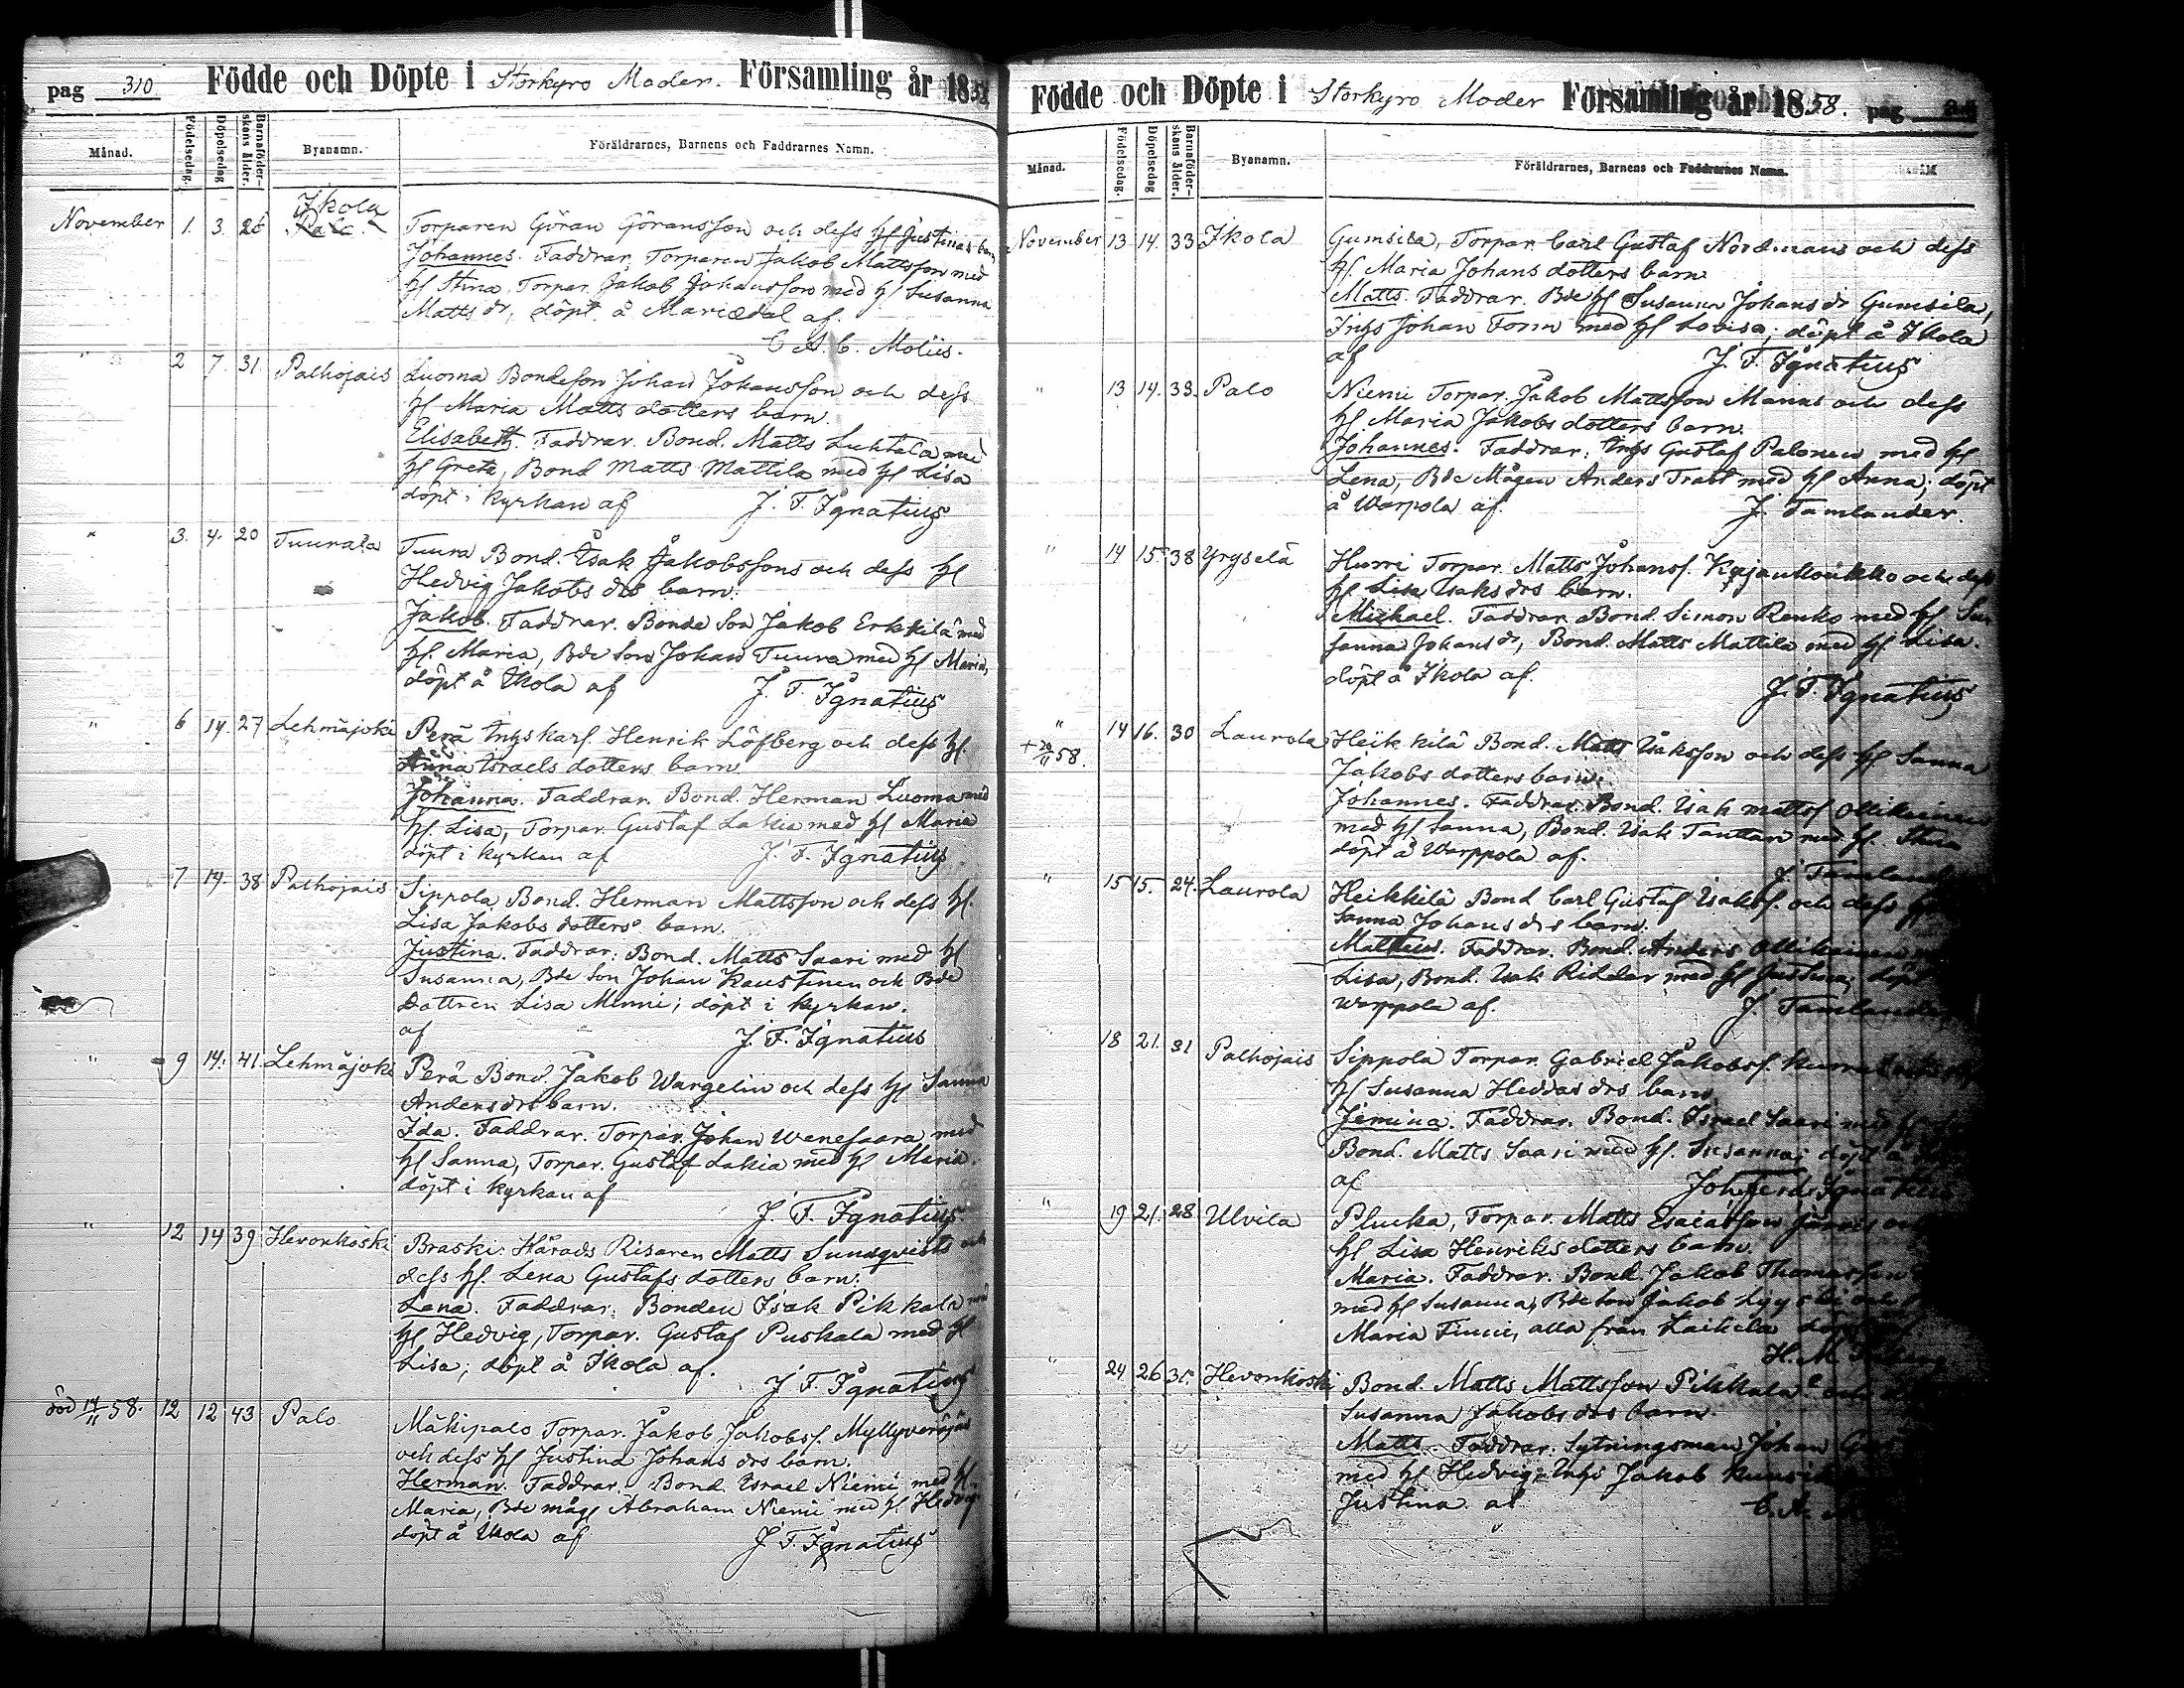 pag 310. Födde och Döpte i Storkyro Moder. Församling år 1858
Månad. Födelsedag. Döpelsedag Barnaföderskans ålder. Byanamn. Föräldrarnes, Barnens och Faddrarnes Namn.
Ikola
November 1. 3. 26 Palo Torparen Göran Göransson och dess H. Justinas barn
Johannes. Faddrar. Torparen Jakob Mattsson med
H. Stina. Torpar. Jakob Johansson med H. Susanna
Matts dr, döpt å Mariedal af.
C. A. C. Moliis.
" 2 7. 31. Palhojais Luoma Bondeson Johan Johansson och dess
H. Maria Matts dotters barn.
Elisabeth. Faddrar. Bond. Matts Luhtala med
H. Greta, Bond Matts Mattila med H. Lisa
döpt i kyrkan af J. F. Ignatius
" 3. 4. 20 Tuurala Tuura Bond. Isak Jakobssons och dess H.
Hedvig Jakobs drs barn.
Jakob. Faddrar. Bonde Son Jakob Erkkilä med
H. Maria, Bde Son Johan Tuura med H. Maria,
döpt å Ikola af J. F. Ignatius
" 6 14. 27 Lehmäjoki Perä Inhyskarl. Henrik Löfberg och dess H.
Anna Israels dotters barn
Johanna. Faddrar. Bond. Herman Luoma med
H. Lisa, Torpar. Gustaf Lakia med H. Maria
döpt i kyrkan af J. F. Ignatius
7 14. 38 Palhojais Sippola Bond. Herman Mattsson och dess H.
Lisa Jakobs dotters barn.
Justina. Faddrar: Bond. Matts Saari med H.
Susanna, Bde Son Johan Kaustinen och Bde
Dottren Lisa Minni; döpt i kyrkan.
af J. F. Ignatius
" 9 14. 41 Lehmäjoki Perä Bond. Jakob Wargelin och dess H. Sanna
Anders drs barn.
Ida. Faddrar. Torpar. Johan Wenesaara med
H. Sanna, Torpar. Gustaf Lakia med H. Maria.
döpt i kyrkan af J. F. Ignatius
" 12 14 39 Hevonkoski Braski. Härads Risaren Matts Sundqvists och
dess H. Lena Gustafs dotters barn.
Lena. Faddrar: Bonden Isak Pikkala med
H. Hedvig, Torpar. Gustaf Puskala med H.
Lisa; döpt å Ikola af. J. F. Ignatius
död 14/11 58. 12 12 43 Palo Mäkipalo Torpar. Jakob Jakobss. Myllyveräjäs
och dess H. Justina Johans drs barn.
Herman. Faddrar. Bond. Israel Niemi med H.
Maria, Bde måg Abraham Niemi med H. Hedvig
döpt å Ikola af J. F. Ignatius
Födde och Döpte i Storkyro Moder Församling år 1858. pag
Månad. Födelsedag. Döpelsedag Barnaföderskans ålder. Byanamn. Föräldrarnes, Barnens och Faddrarnes Namn.
November 13 14. 33 Ikola Gumsila, Torpar. Carl Gustaf Nordmans och dess
H. Maria Johans dotters barn
Matts. Faddrar. Bde H. Susanna Johans dr Gumsila,
Inhys Johan Forss med H. Lovisa; döpt å Ikola
af J. F. Ignatius
" 13 14. 33. Palo Niemi Torpar. Jakob Mattsson Manus och dess
H. Maria Jakobs dotters barn.
Johannes. Faddrar. Inhys Gustaf Palonen med H.
Lena, Bde Mågen Anders Trast med H. Anna; döpt
å Warpola af. J. Tamlander.
" 14 15. 38 Yryselä Hurri Torpar. Matts Johanss. och dess
H. Lisa Isaks drs barn.
Michael. Faddrar. Bond. Simon Renko med H. Su
sanna Johans dr, Bond. Matts Mattila med H. Lisa.
döpt å Ikola af. J. F. Ignatius
" 14 16. 30 Laurola Heikkilä Bond. Matts Isaksson och dess H. Sanna
+ 20/11 58. Jakobs dotters barn.
Johannes. Faddrar. Bond. Isak Mattss Ollikainen
med H. Sanna, Bond. Isak Tauttari med H. Stina
döpt å Warppola af.
J. Tamland
" 15 15. 24. Laurola Heikkilä Bond Carl Gustaf Isakss. och dess
Sanna Johans drs barn.
Matthias. Faddrar. Bond. Anders Ollikainen
Lisa, Bond. Isak Riddar med H. Justina; döpt
Warppola af. J. Tamlander
18 21. 31 Palhojais Sippola Torpar. Gabriel Jakobss.
H. Susanna Heddas drs barn
Jemina. Faddrar. Bond. Israel Saari med H.
Bond. Matts Saari med H. Susanna; döpt å
af Joh. Ferd. Ignatius
" 19 21. 28 Ulvila Plucka, Torpar. Matts Esaiasson
H. Lisa Henriks dotters barn.
Maria. Faddrar. Bond. Jakob Thomasson
med H. Susanna, Bde Son Jakob
Maria Finni, alla från Laihela döpt
H. M.
" 24 26 35. Hevonkoski Bond. Matts Mattsson Pikkala och
Susanna Jakobs drs barn.
Matts. Faddrar. Sytningsman Johan
med H. Hedvig, Inhys Jakob
Justina. af C. A.